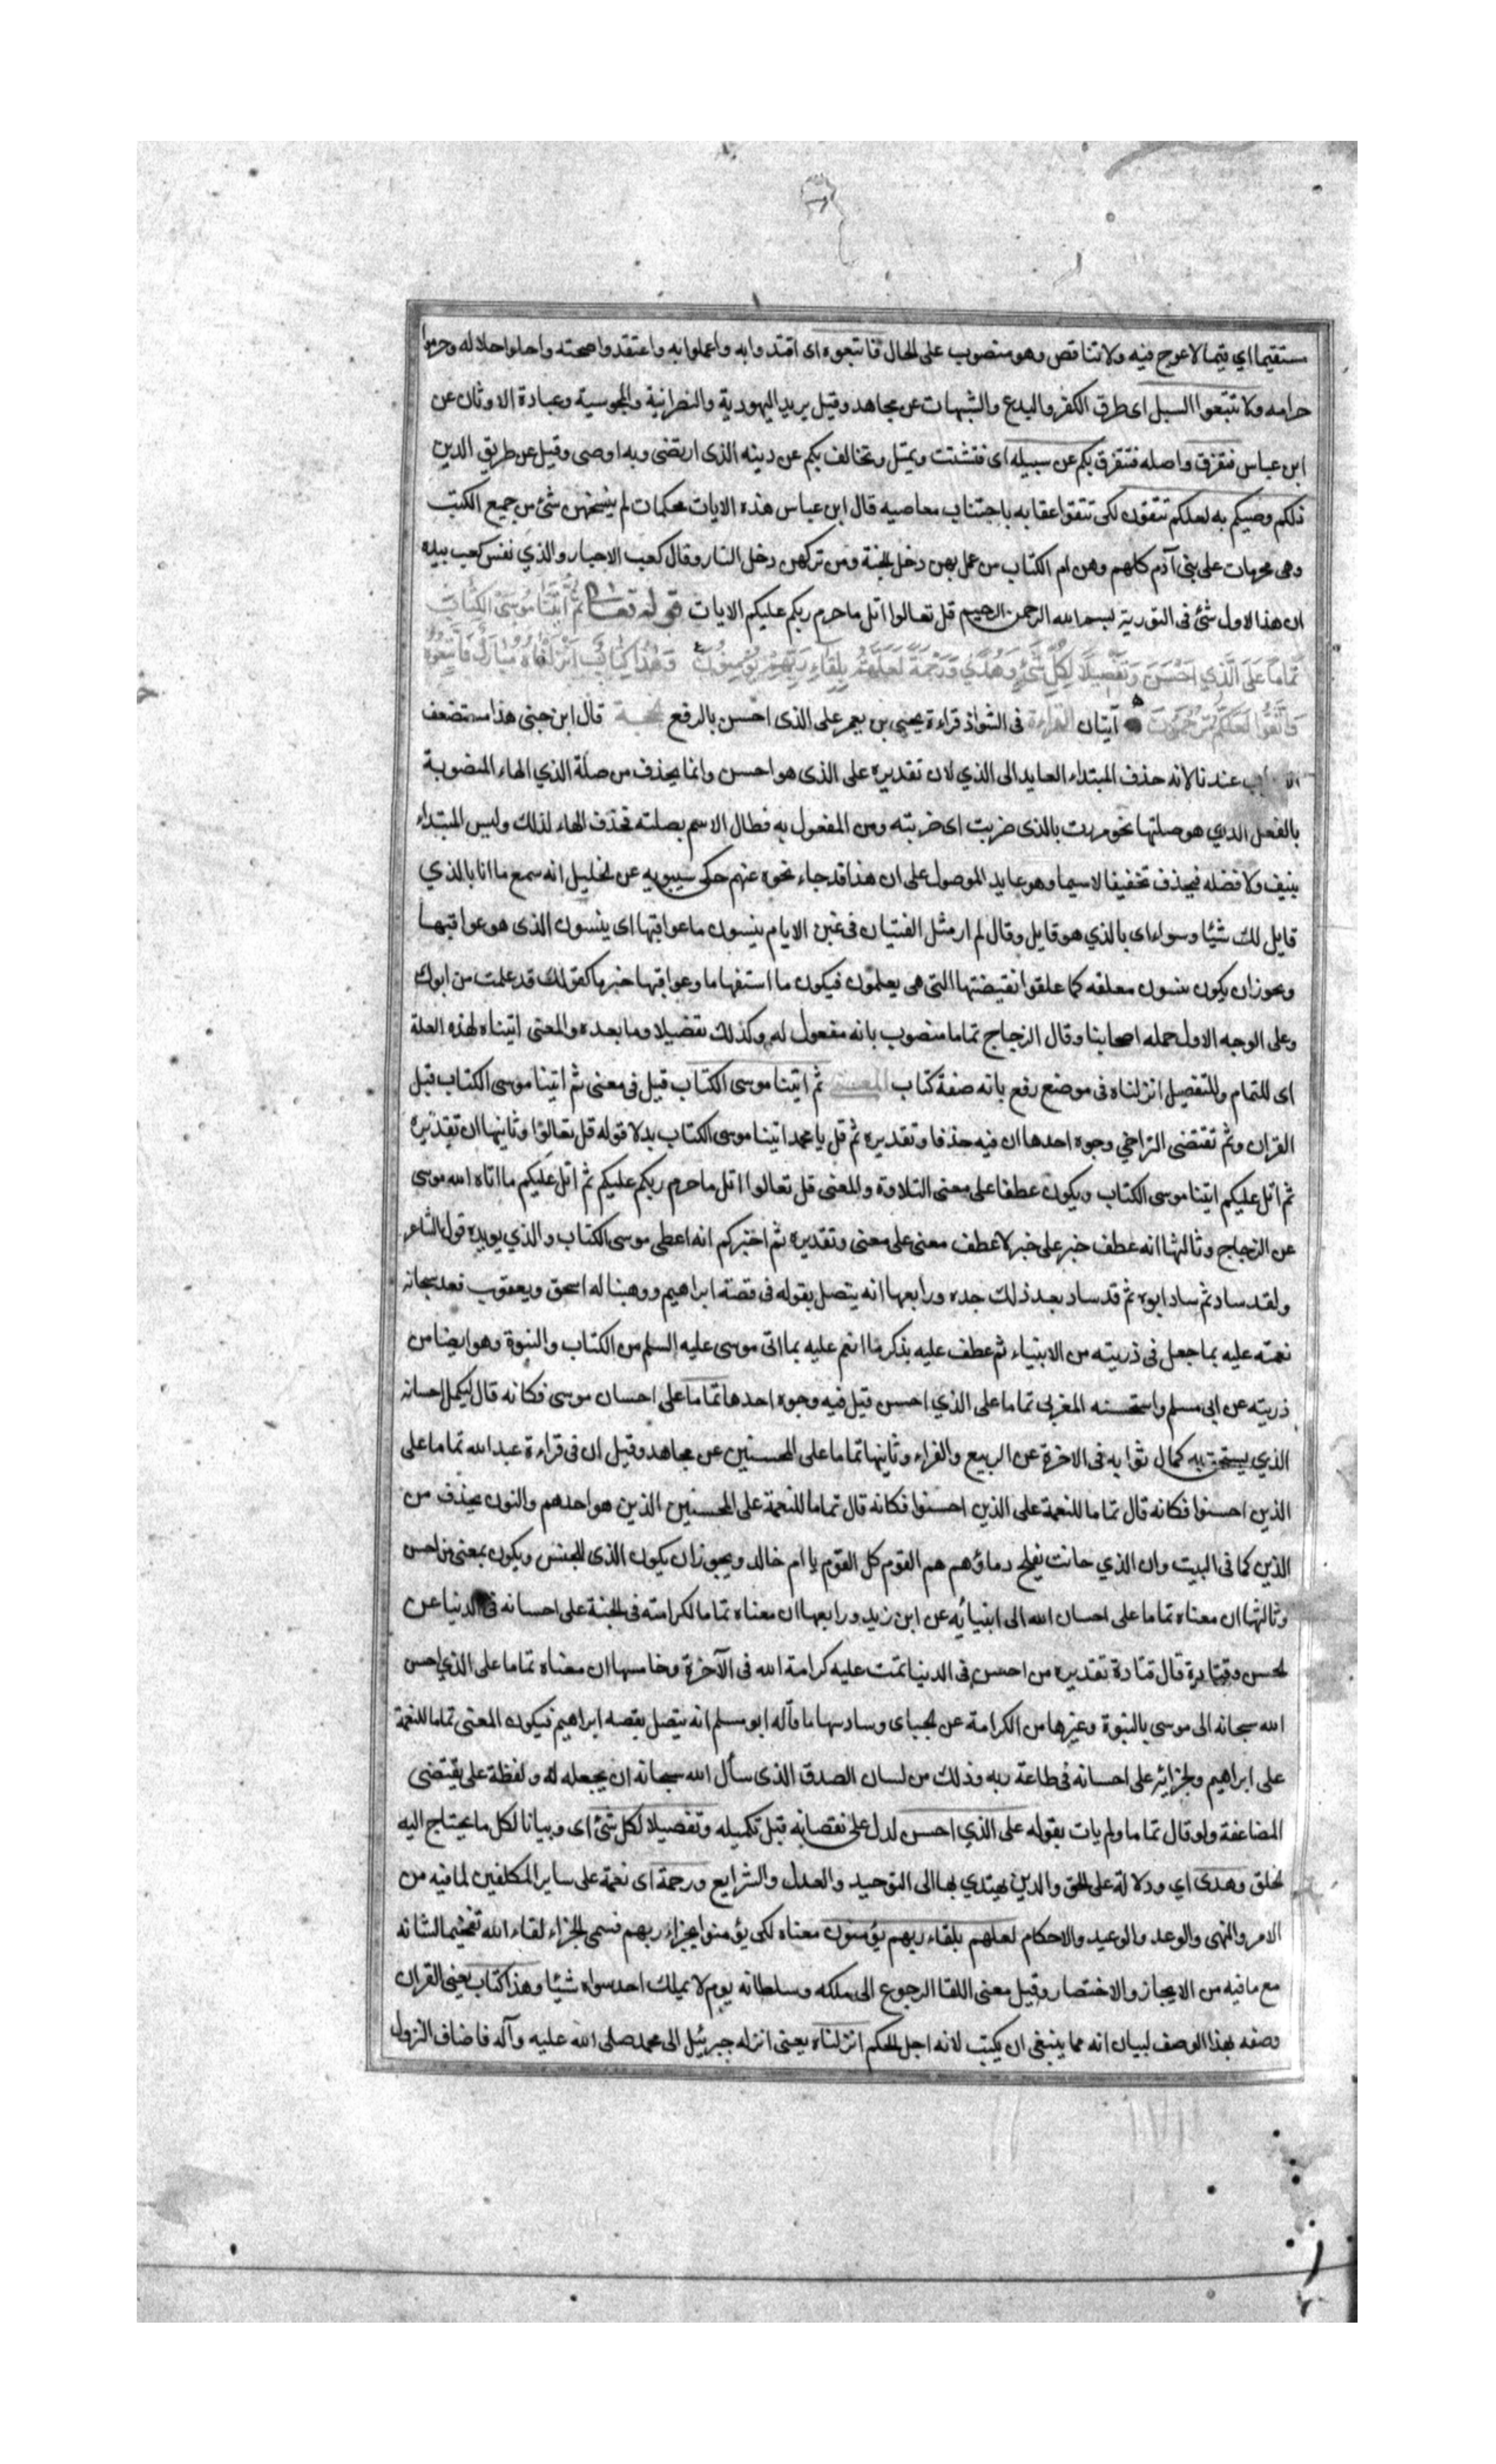 مستقيما اي قيما لا عوج فيه ولا تناقص وهو منصوب على الحال فاتبعوه اى اقتدوا به واعملوا به واعتقدوا صحته واحلوا حلاله وحرموا
حرامه ولا تتبعوا السبل اى طرق الكفر والبدع والشبهات عن مجاهد وقيل يريد اليهودية والنصرانية والمجوسية وعبادة الاوثان عن
ابن عباس فتفرق واصله فتتفرق بكم عن سبيله اى فتشتت وتميل وتخالف بكم عن دينه الذى ارتضى وبه اوصى وقيل عن طريق الدين
ذلكم وصيكم به لعلكم تتقون لكى تتقوا عقابه باجتناب معاصيه قال ابن عباس هذه الايات محكمات لم ينسخهن شئ من جميع الكتب
وهى محرمات على بنى آدم كلهم وهن ام الكتاب من عمل بهن دخل الجنة ومن تركهن دخل النار وقال كعب الاحبار والذي نفس كعب بيده
ان هذا لاول شئ فى التورية بسم الله الرحمن الرحيم قل تعالوا اتل ما حرم ربكم عليكم الايات قوله تعالى ثُمَّ اتَيْنَا مُوسَى الْكِتَابَ
تَمَامًا عَلَى الَّذِي اَحْسَنَ وَتَفْصِيلًا لِكُلِّ شَيْءٍ وَهُدًى وَرَحْمَةً لَعَلَّهُمْ بِلِقَاءِ رَبِّهِمْ يُؤْمِنُونَ وَهٰذَا كِتَابٌ اَنْزَلْنَاهُ مُبَارَكٌ فَاتَّبِعُوهُ
وَاتَّقُوا لَعَلَّكُمْ تُرْحَمُونَ آيتان القراءة فى الشواذ قراءة يحيى بن يعمر على الذى احسن بالرفع الحجة قال ابن جنى هذا مستضعف
عندنا لانه حذف المبتداء العايد الى الذي لان تقديره على الذى هو احسن وانما يحذف من صلة الذي الهاء المنصوبة
بالفعل الذي هو صلتها نحو مررت بالذى ضربت اى ضربته ومن المفعول به فطال الاسم بصلته فحذف الهاء لذلك وليس المبتداء
بنيف ولا فضله فيحذف تخفيفا لاسيما وهو عايد الموصول على ان هذا قد جاء نحوه عنهم حكى سيبويه عن الخليل انه سمع ما انا بالذي
قايل لك شيئا وسواء اى بالذي هو قايل وقال لم ار مثل الفتيان فى غبن الايام ينسون ما عواقبها اى ينسون الذى هو عواقبها
ويجوز ان يكون ينسون معلقه كما علقوا نقيضتها التى هى يعلمون فيكون ما استفهاما وعواقبها خبرها كقولك قد علمت من ابوك
وعلى الوجه الاول حمله اصحابنا وقال الزجاج تماما منصوب بانه مفعول له وكذلك تفضيلا وما بعده والمعنى اتيناه لهذه العلة
اى للتمام وللتفصيل انزلناه فى موضع رفع بانه صفة كتاب المعنى ثم اتينا موسى الكتاب قيل فى معنى ثم اتينا موسى الكتاب قبل
القران وثم تقتضى التراخي وجوه احدها ان فيه حذفا وتقديره ثم قل يا محمد اتينا موسى الكتاب بدلا قوله قل تعالوا وثانيها ان تقديره
ثم اتل عليكم اتينا موسى الكتاب ويكون عطفا على معنى التلاوة والمعنى قل تعالوا اتل ما حرم ربكم عليكم ثم اتل عليكم ما اتاه الله موسى
عن الزجاج وثالثها انه عطف خبر على خبر لا عطف معنى على معنى وتقديره ثم اخبركم انه اعطى موسى الكتاب والذي يويده قول الشاعر
ولقد ساد ثم ساد ابوه ثم قد ساد بعد ذلك جده ورابعها انه يتصل بقوله فى قصة ابراهيم ووهبنا له اسحق ويعقوب فعد سبحانه
نعمته عليه بما جعل فى ذريته من الانبياء ثم عطف عليه بذكر ما انعم عليه بما اتى موسى عليه السلم من الكتاب والنبوة وهو ايضا من
ذريته عن ابى مسلم واستحسنه المغربى تماما على الذي احسن قيل فيه وجوه احدها تماما على احسان موسى فكانه قال ليكمل احسانه
الذي يستحق به كمال ثوابه فى الاخرة عن الربيع والفراء وثانيها تماما على المحسنين عن مجاهد وقيل ان فى قراءة عبد الله تماما على
الذين احسنوا فكانه قال تماما للنعمة على الذين احسنوا فكانه قال تماما للنعمة على المحسنين الذين هو احدهم والنون يحذف من
الذين كما فى البيت وان الذي حانت بفلج دماؤهم هم القوم كل القوم يا ام خالد ويجوز ان يكون الذى للجنس ويكون بمعنى من احسن
وثالثها ان معناه تماما على احسان الله الى انبيائه عن ابن زيد ورابعها ان معناه تماما لكرامته فى الجنة على احسانه فى الدنيا عن
الحسن وقتادة قال قتادة تقديره من احسن فى الدنيا تمت عليه كرامة الله فى الآخرة وخامسها ان معناه تماما على الذي احسن
الله سبحانه الى موسى بالنبوة وغيرها من الكرامة عن الجبائى وسادسها ما قاله ابو مسلم انه يتصل بقصه ابراهيم فيكون المعنى تماما للنعمة
على ابراهيم ولجزائه على احسانه فى طاعة ربه وذلك من لسان الصدق الذى سأل الله سبحانه ان يجعله له ولفظة على يقتضى
المضاعفة ولو قال تماما ولم يات بقوله على الذي احسن لدل على نقصانه قبل تكميله وتفصيلا لكل شئ اى وبيانا لكل ما يحتاج اليه
الخلق وهدى اي ودلالة على الحق والدين يهتدي بها الى التوحيد والعدل والشرايع ورحمة اى نعمة على ساير المكلفين لما فيه من
الامر والنهى والوعد والوعيد والاحكام لعلهم بلقاء ربهم يؤمنون معناه لكى يؤمنوا بجزاء ربهم فسمى الجزاء لقاء الله تفخيما لشانه
مع ما فيه من الايجاز والاختصار وقيل معنى اللقا الرجوع الى ملكه وسلطانه يوم لا يملك احد سواه شيئا وهذا كتاب يعنى القران
وصفه بهذا الوصف لبيان انه مما ينبغى ان يكتب لانه اجل الحكم انزلناه يعنى انزله جبرئيل الى محمد صلى الله عليه وآله فاضاف النزول